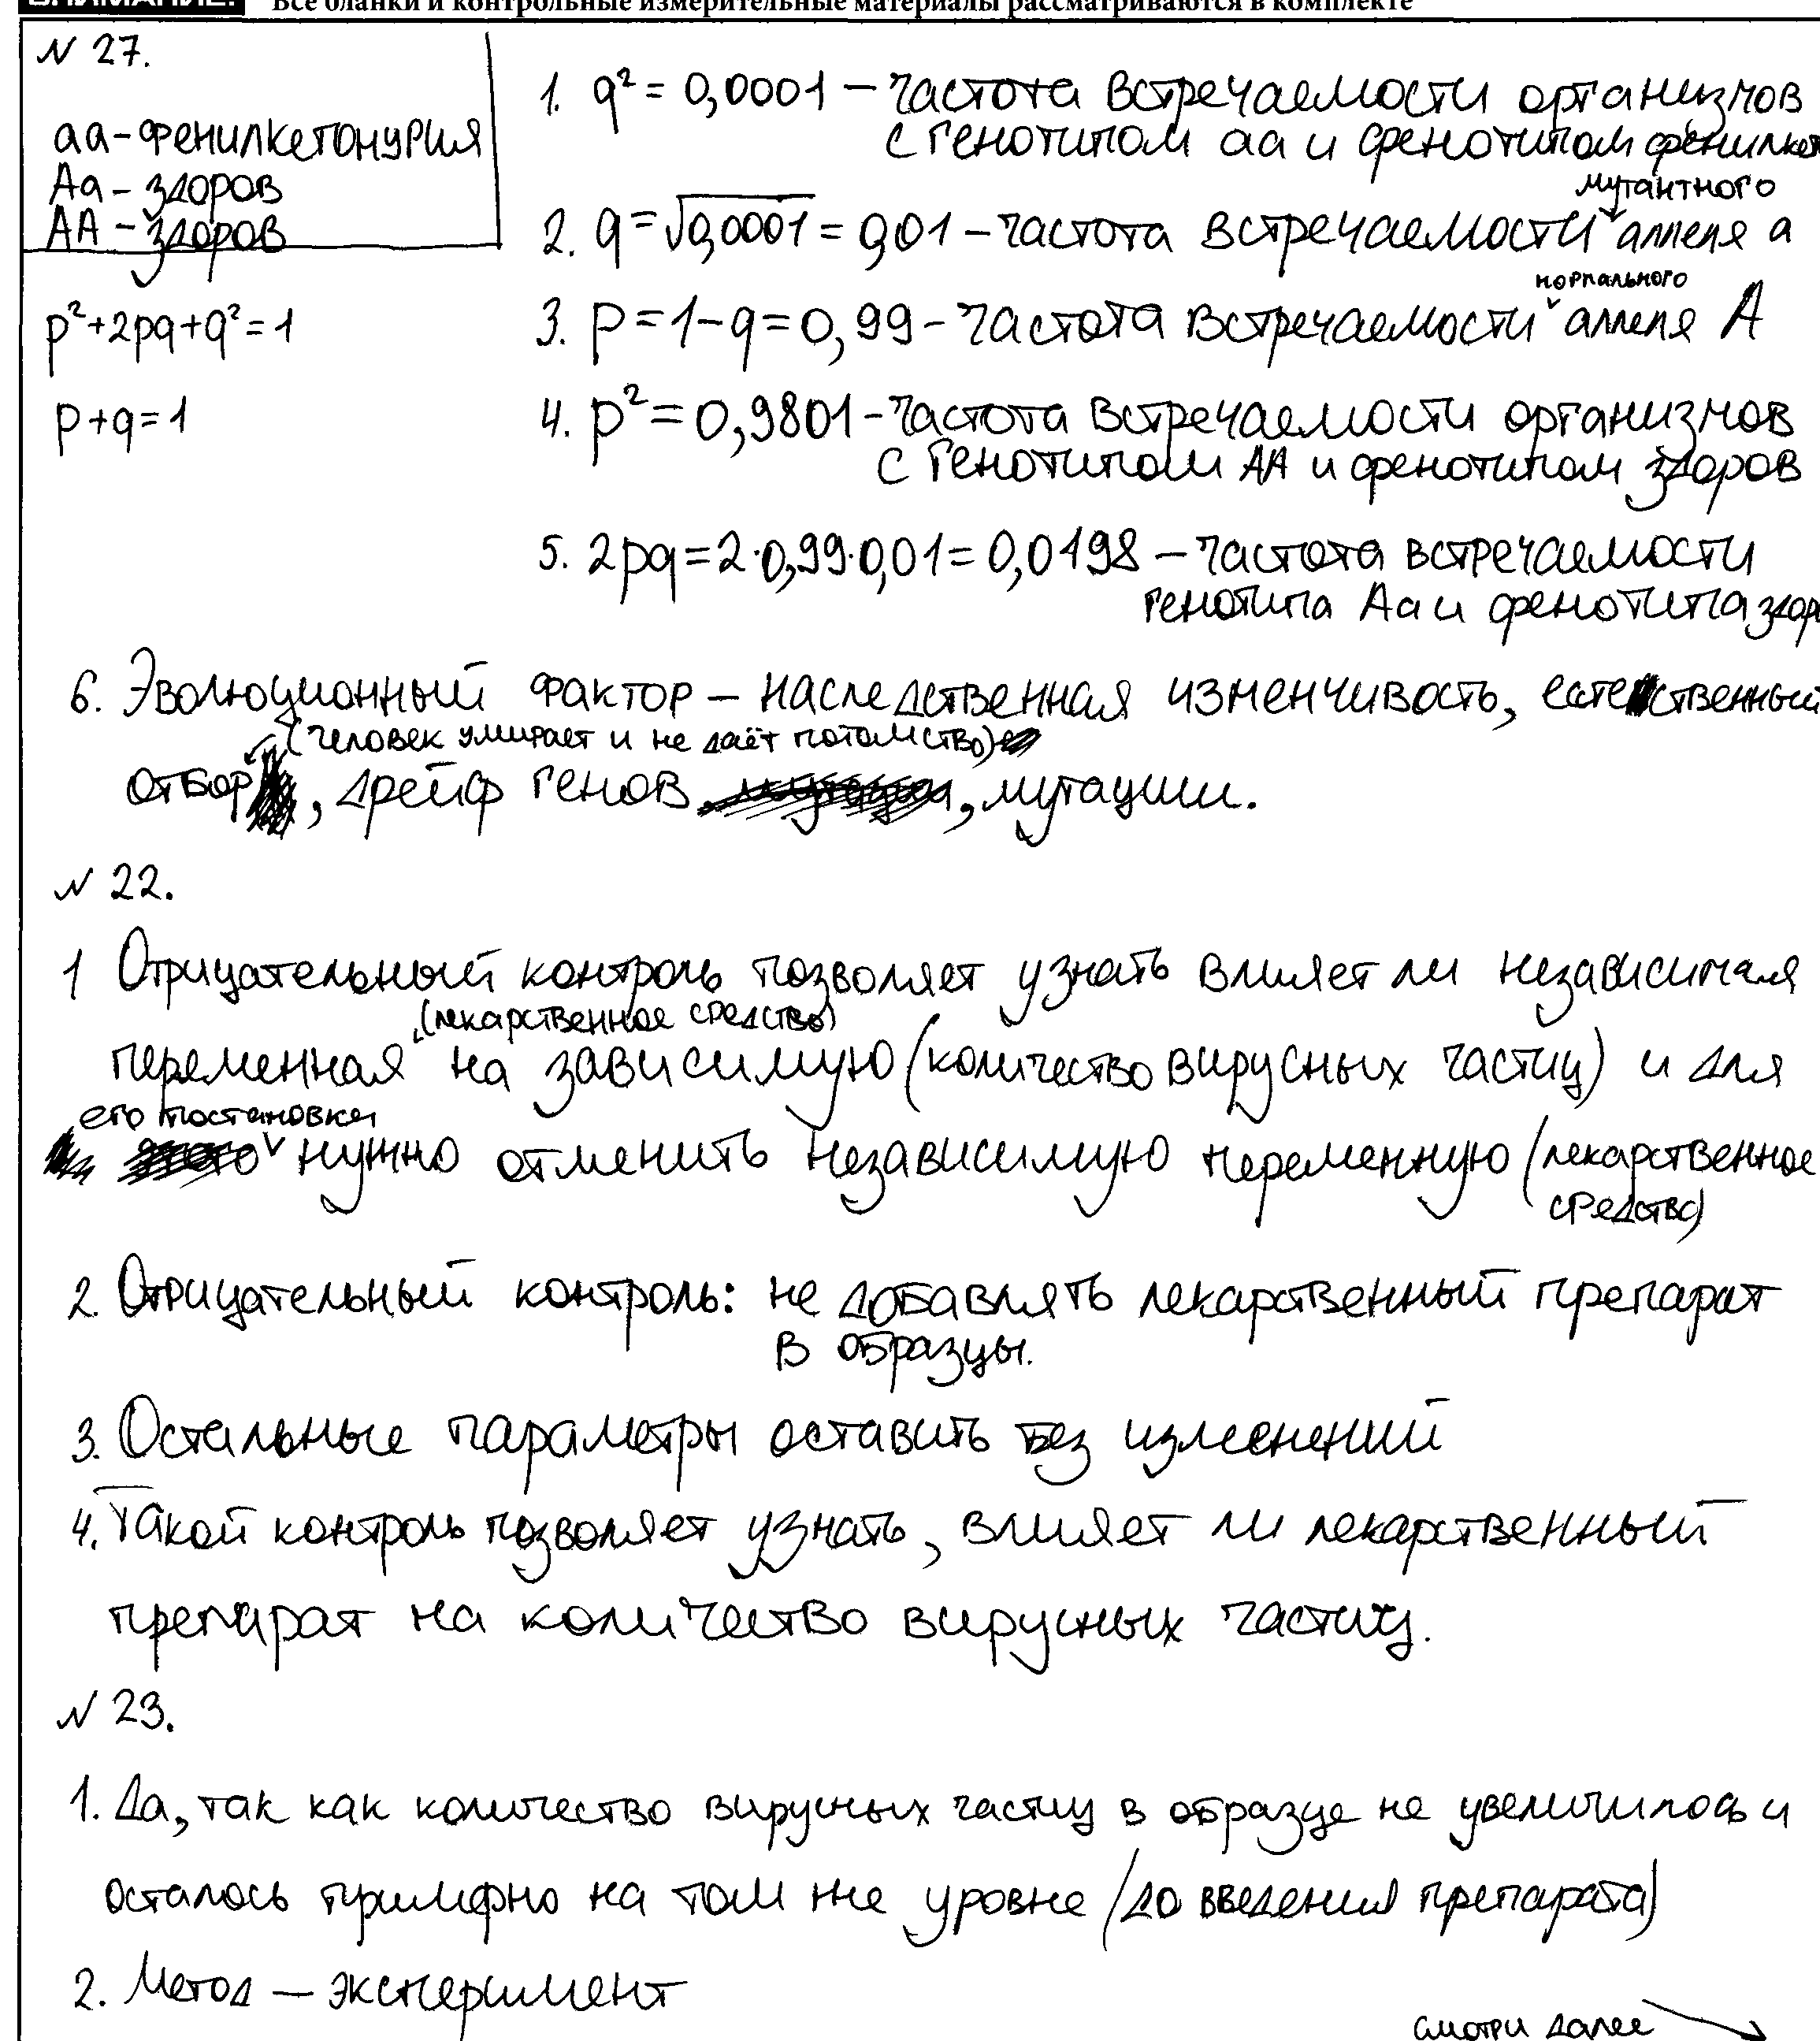 ВНИМАНИЕ! Все бланки и контрольные измерительные материалы рассматриваются в комплекте
N 27.
аа - фенилкетонурия
Аа - здоров
АА - здоров
p²+2pq+q²=1
p+q=1
1. q² = 0,0001 – частота встречаемости организмов
с генотипом аа и фенотипом фенилкет
мутантного
2. q = √0,0001 = 0,01 – частота встречаемости аллеля а
нормального
3. p = 1-q = 0,99 - частота встречаемости аллеля А
4. p² = 0,9801 - частота встречаемости организмов
с генотипом АА и фенотипом здоров
5. 2pq = 2·0,99·0,01 = 0,0198 – частота встречаемости
генотипа Аа и фенотипа здор
6. Эволюционный фактор – наследственная изменчивость, естественный
(человек умирает и не даёт потомство)
отбор, дрейф генов, мутации.
N 22.
1 Отрицательный контроль позволяет узнать влияет ли независимая
(лекарственное средство)
переменная на зависимую (количество вирусных частиц) и для
его постановки
нужно отменить независимую переменную (лекарственное
средство)
2. Отрицательный контроль: не добавлять лекарственный препарат
в образцы.
3. Остальные параметры оставить без изменений
4. Такой контроль позволяет узнать, влияет ли лекарственный
препарат на количество вирусных частиц.
N 23.
1. Да, так как количество вирусных частиц в образце не увеличилось и
осталось примерно на том же уровне (до введения препарата)
2. Метод — эксперимент
смотри далее